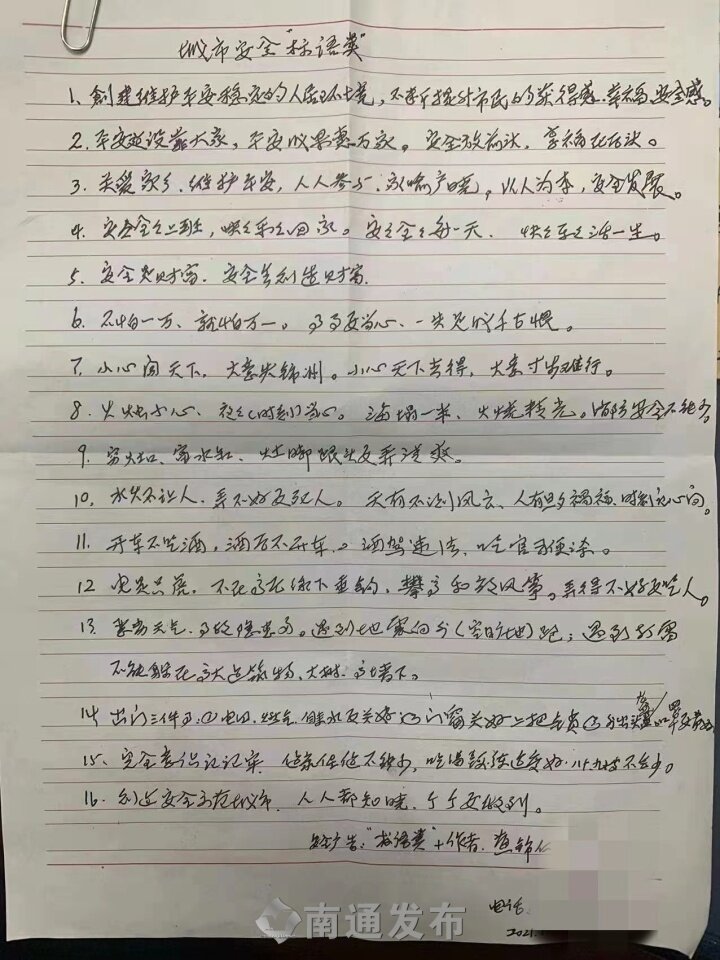 城市安全"标语类"
1、创建维护平安稳定的人居环境，不断提升市民的获得感、幸福、安全感。
2、平安建设靠大家，平安成果惠万家。安全放前决，享福在后决。
3、关爱家乡、维护平安，人人参与、家喻户晓，以人为本，安全发展。
4、安安全全上班，快快乐乐回家。安安全全每一天、快快乐乐活一生。
5、安全是财富、安全是创造财富。
6、不怕一万、就怕万一。事事要当心、一失足成千古恨。
7、小心闯天下，大意失荆州。小心天下去得，大意寸步难行。
8、火烛小心、夜夜时刻当心。海塌一半、火烧精光。消防安全不能少。
9、穷灶口、富水缸、灶脚跟头要弄清爽。
10、水火不让人、弄不好要死人。天有不测风云、人有旦夕祸福、时刻记心间。
11、开车不吃酒，酒后不开车。酒驾违法、吃官司便该。
12、电是老虎，不在高压线下垂钓、攀高和放风筝。弄得不好要吃人。
13、雷雨天气、事故隐患多。遇到地震向外(空旷地)跑；遇到打雷
不能躲在高大建筑物、大树、高墙下。
14、出门三件事：①电口、燃气、自来水要关好 ② 门窗关好 ③ 外出 口罩要带好
15、安全意识记记牢、
16、创建安全示范城市、人人都知晓、个个要做到。
"标语类" 作者：
电话：
2021.
南通发布